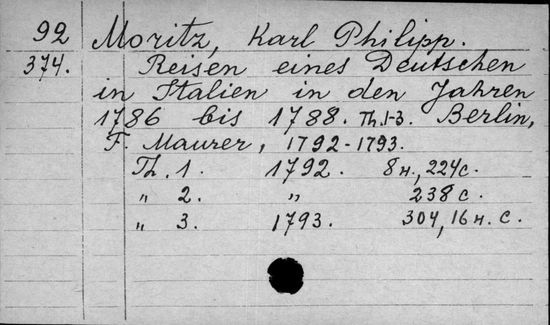 92 Moritz, Karl Philipp.
374. Reisen eines Deutschen
in Italien in den Jahren
1786 bis 1788. Th. 1-3. Berlin,
F. Maurer, 1792-1793.
Th. 1. 1792. 8 н., 224 с.
„ 2. „ 238 с.
„ 3. 1793. 304, 16 н. с.